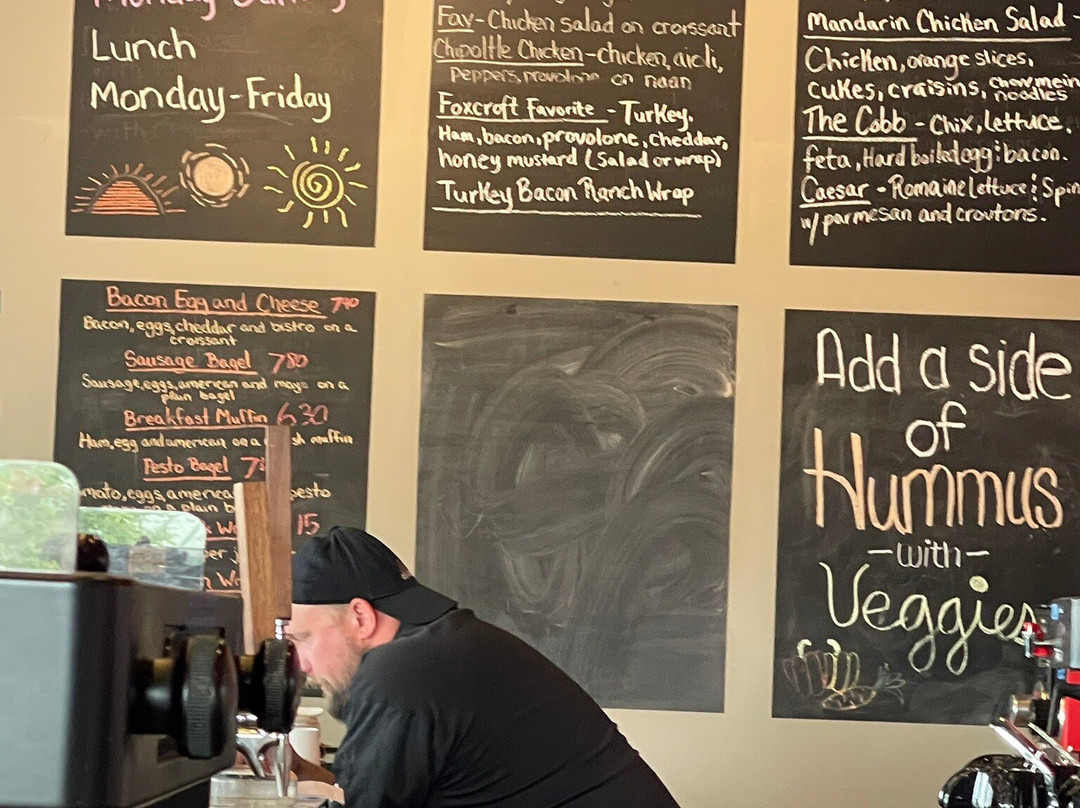 Lunch
Monday-Friday
Fav-Chicken salad on croissant
Chipoltle Chicken-chicken, aioli,
peppers, provolone on naan
Foxcroft Favorite - Turkey,
Ham, bacon, provolone, cheddar,
honey mustard (Salad or wrap)
Turkey Bacon Ranch Wrap
Mandarin Chicken Salad -
Chicken, orange slices,
cukes, craisins, chowmein
noodles
The Cobb - Chix, Lettuce,
feta, Hard boiled egg & bacon.
Caesar - Romaine lettuce & Spin
w/parmesan and croutons.
Bacon Egg and Cheese 7.90
Bacon, eggs, cheddar and bistro on a
croissant
Sausage Bagel 7.80
Sausage, eggs, american and mayo on a
plain bagel
Breakfast Muffin 6.30
Ham, egg and american on a sh muffin
Pesto Bagel 7
mato, eggs, america pesto
on a plain b
15
per
Add a side
of
Hummus
-with-
Veggies